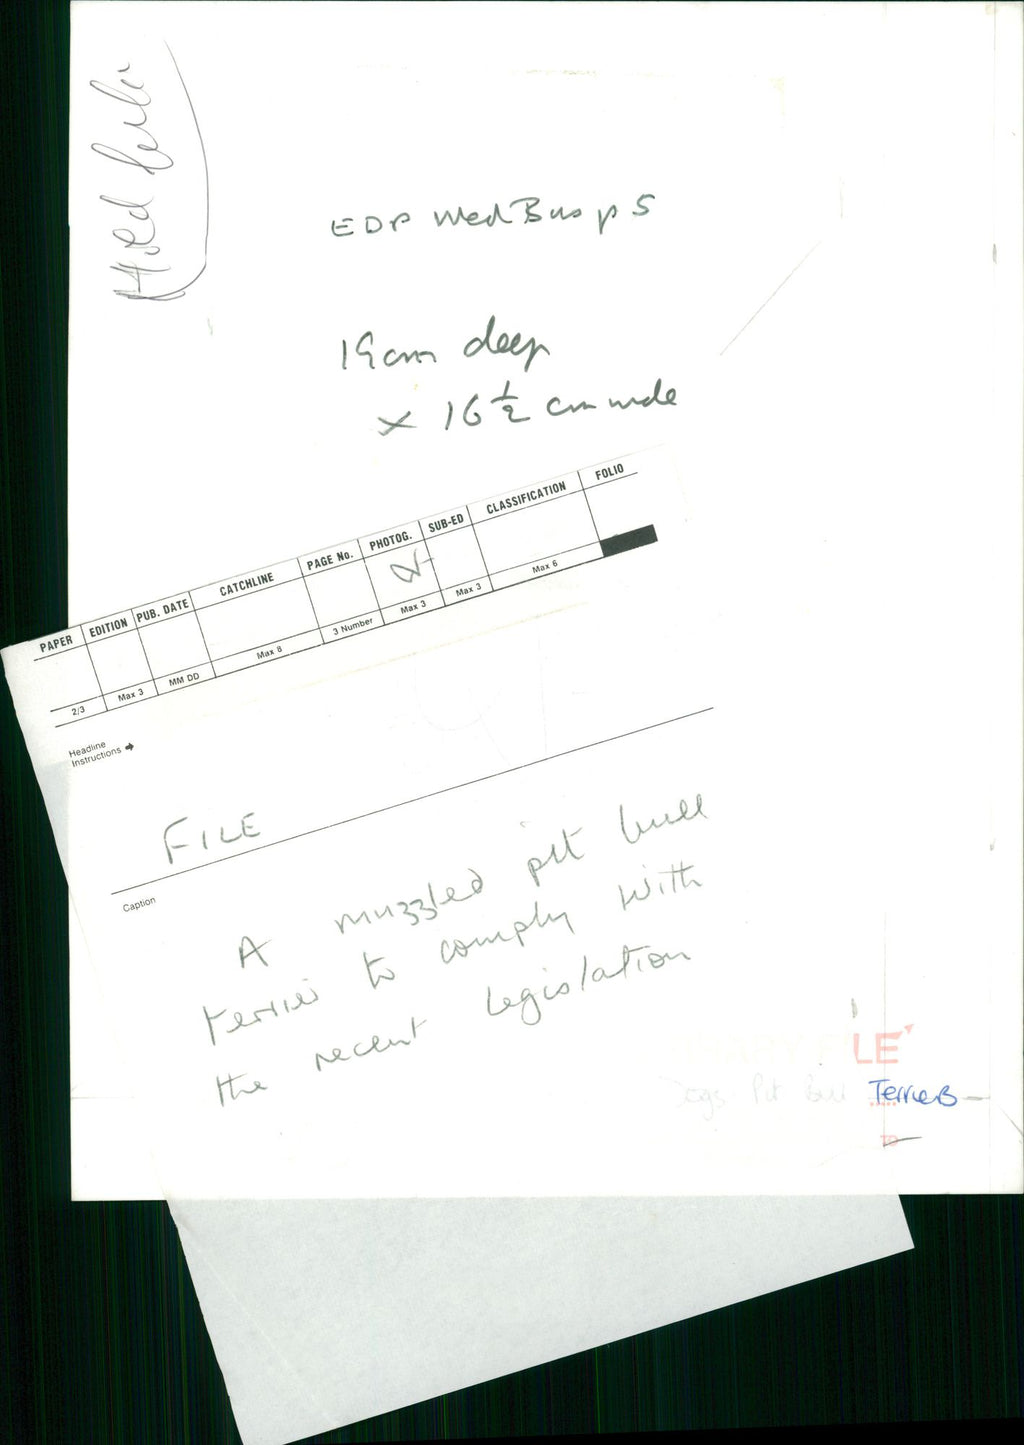 EDP Wed Bus p 5
19cm deep
x 16 1/2 cm wide
PAPER EDITION PUB. DATE CATCHLINE PAGE No. PHOTOG. SUB-ED CLASSIFICATION FOLIO
2/3 Max 3 MM DD Max 8 3 Number Max 3 Max 3 Max 6
Headline
Instructions
FILE
Caption
A muzzled pit bull
terrier to comply with
the recent legislation
LE
Dogs Pit Bull Terriers